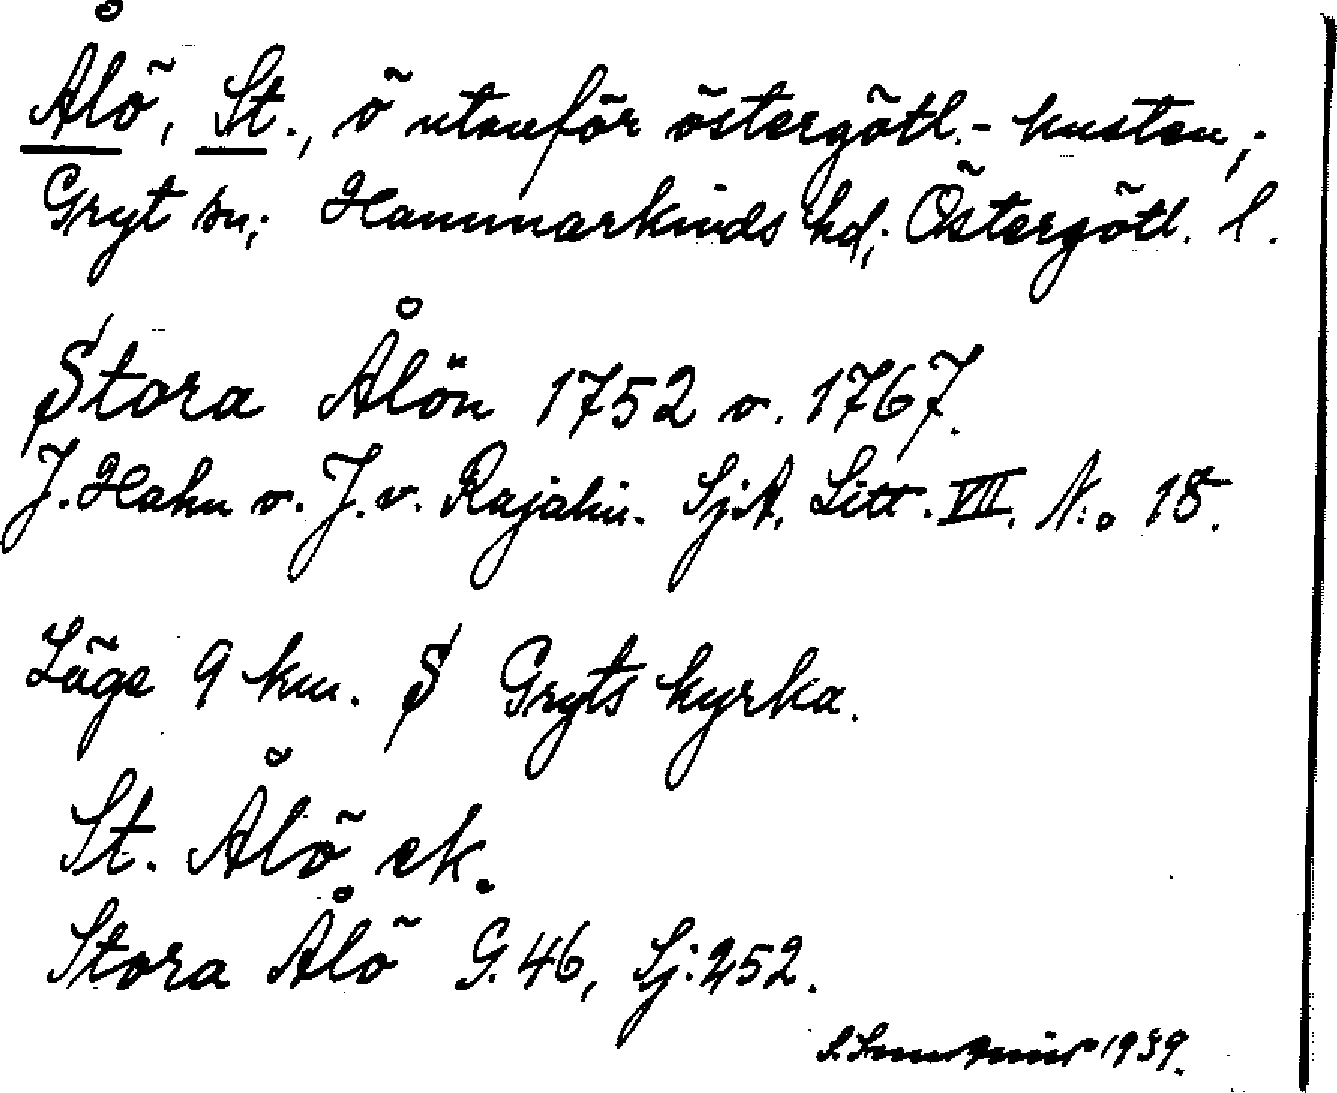 Ålö, St., ö utanför östergötl.-kusten,;
Gryt sn; Hammarkinds hd; Östergötl. l.
Stora Ålön 1752 o. 1767.
J. Hahn o. J. v. Rajalin. SjA. Litt. VII. N:o 15.
Läge 9 km. S Gryts kyrka.
St. Ålö ek.
Stora Ålö G. 46, Sj: 252.
1939.